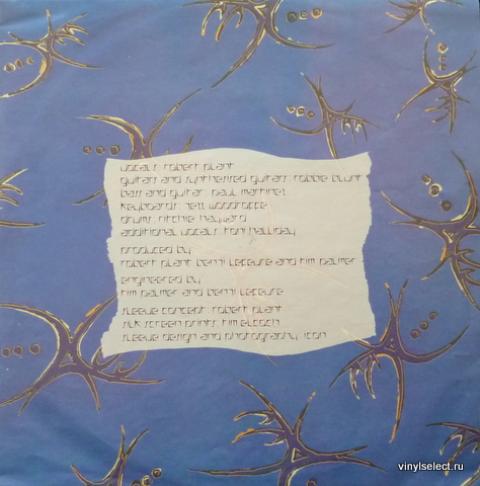 vocals: robert plant
guitars and synthesised guitars: robbie blunt
bass and guitar: paul martinez
keyboards: jezz woodroffe
drums: ritchie hayward
additional vocals: toni halliday
produced by
robert plant benji lefevre and tim palmer
engineered by
tim palmer and benji lefevre
sleeve concept: robert plant
silk screen prints: kim
sleeve design and photography: icon
vinylselect.ru